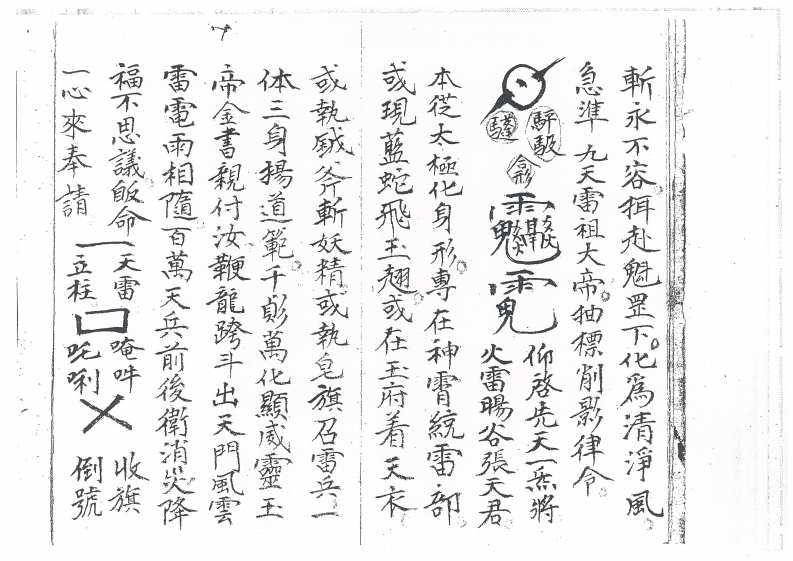 斬永不容揖赴魁罡下化爲清淨風
急準九天雷祖大帝抽標削影律令
合形
仰啓先天一炁將
火雷暘谷張天君
本從太極化身形專在神霄統雷部
或現藍蛇飛玉翅或在玉府着天衣
或執鉞斧斬妖精或執皂旗召雷兵一
体三身揚道範千變萬化顯威靈玉
帝金書親付汝鞭龍跨斗出天門風雲
雷電雨相隨百萬天兵前後衛消災降
福不思議皈命 天雷 唵吽 收旗
一心來奉請 立柱 吒唎 倒號